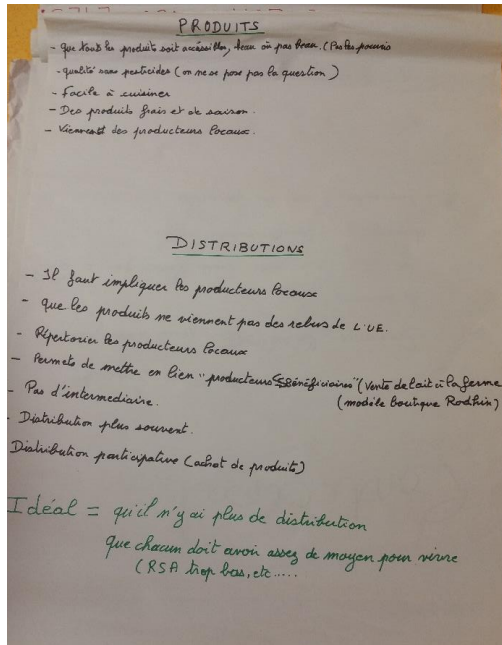 PRODUITS
- que tout les produits soit accéssibles, beau ou pas beau. (Pas les pourris
- qualité sans pesticides (on ne se pose pas la question)
- Facile à cuisiner
- Des produits frais et de saison.
- Viennent des producteurs locaux.
DISTRIBUTIONS
- Il faut impliquer les producteurs locaux
- que les produits ne viennent pas des rebus de L'UE.
- Répertorier les producteurs locaux
- Permets de mettre en lien "producteurs bénéficiaires" (vente de lait à la ferme
- Pas d'intermediaire. (modèle boutique Rodhin)
- Distribution plus souvent.
Distribution participative (achat de produits)
Idéal = qu'il n'y ai plus de distribution
que chacun doit avoir assez de moyen pour vivre
(RSA trop bas, etc.....